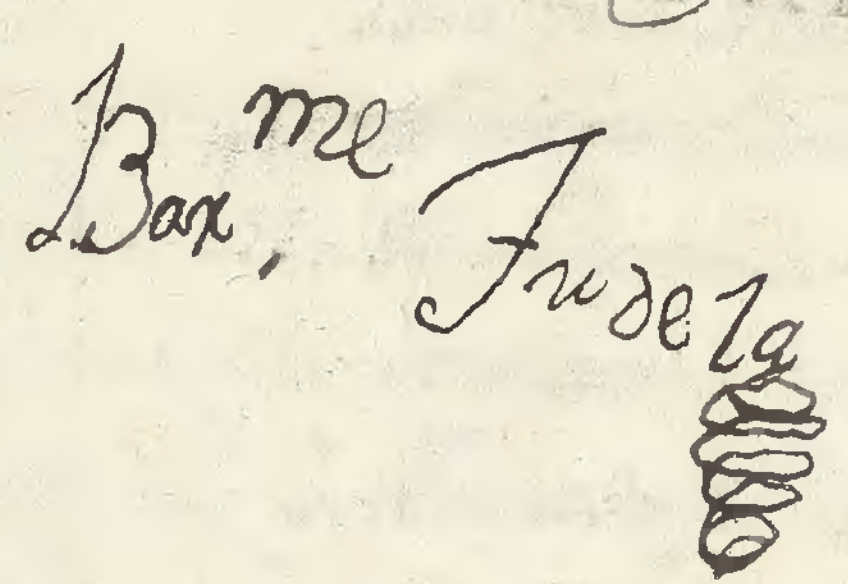 Bar,me Tudela